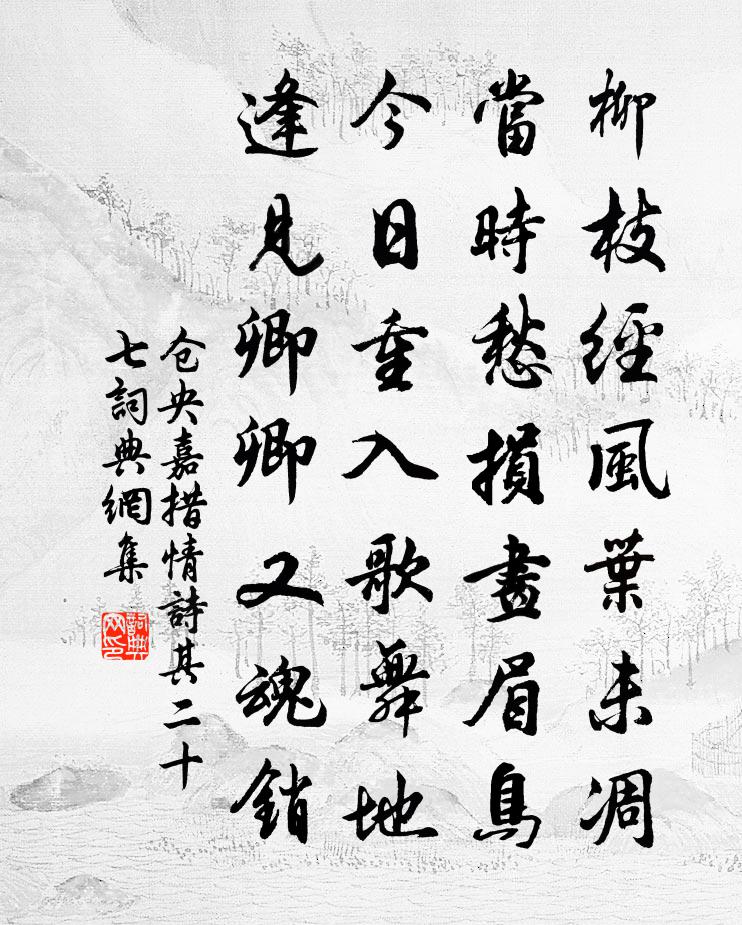 柳枝經風葉未凋
當時愁損畫眉鳥
今日重入歌舞地
逢見卿卿又魂銷
仓央嘉措情詩其二十
七詞典網集
詞典
网印